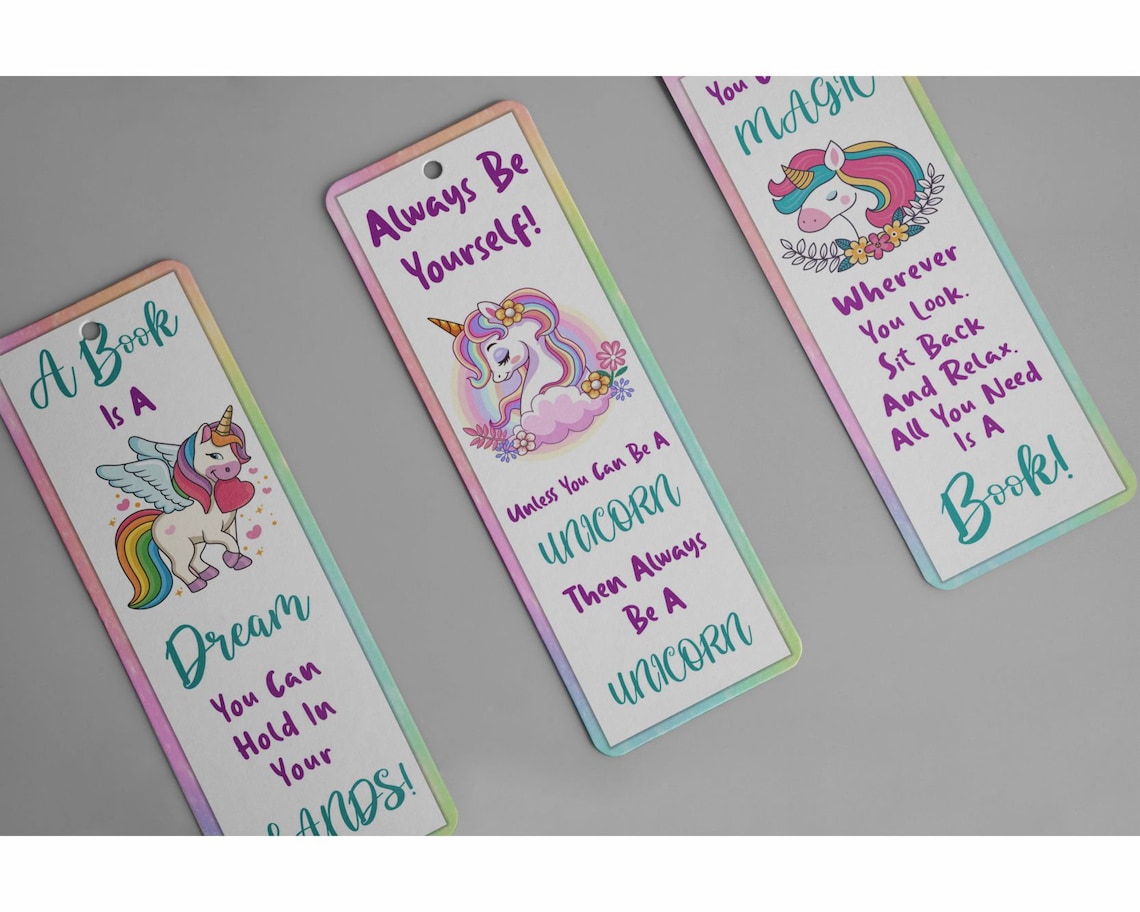 A Book
Is A
Dream
You Can
Hold In
Your
HANDS!
Always Be
Yourself!
Unless You Can Be A
UNICORN
Then Always
Be A
UNICORN
You
MAGIC
Wherever
You Look.
Sit Back
And Relax.
All You Need
Is A
Book!